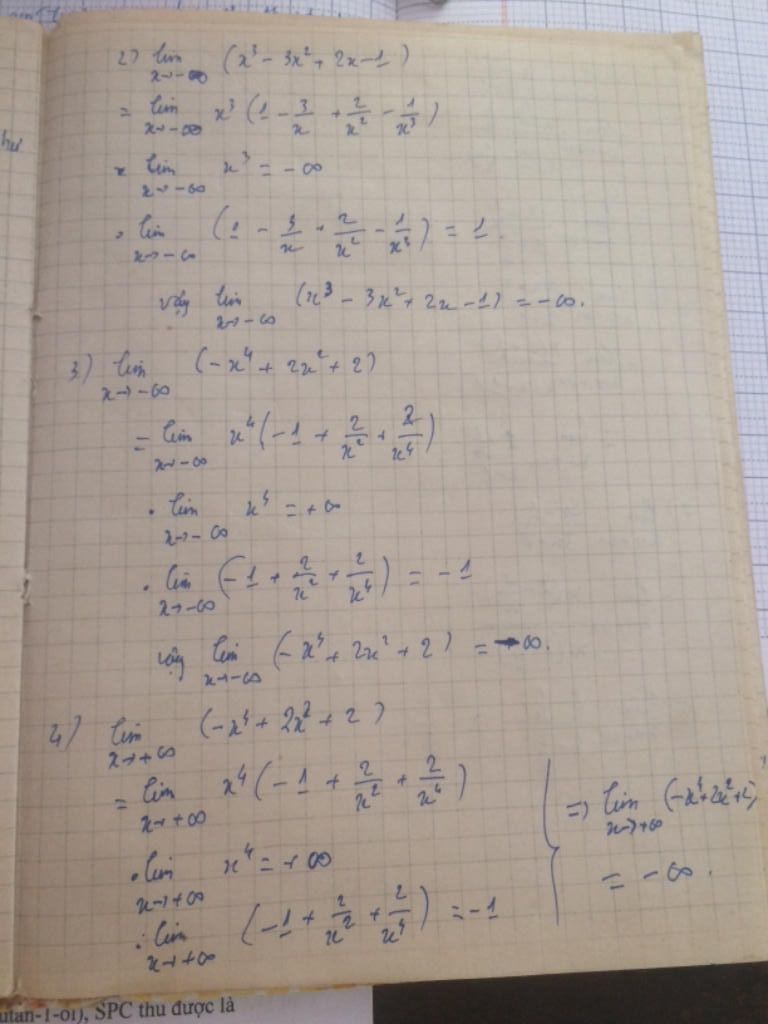 2) lim x→-∞ (x³ - 3x² + 2x - 1)
= lim x→-∞ x³ (1 - 3/x + 2/x² - 1/x³)
* lim x→-∞ x³ = -∞
• lim x→-∞ (1 - 3/x + 2/x² - 1/x³) = 1.
vậy lim x→-∞ (x³ - 3x² + 2x - 1) = -∞.
3) lim x→-∞ (-x⁴ + 2x² + 2)
= lim x→-∞ x⁴ (-1 + 2/x² + 2/x⁴)
• lim x→-∞ x⁴ = +∞
• lim x→-∞ (-1 + 2/x² + 2/x⁴) = -1
vậy lim x→-∞ (-x⁴ + 2x² + 2) = -∞.
4) lim x→+∞ (-x⁴ + 2x² + 2)
= lim x→+∞ x⁴ (-1 + 2/x² + 2/x⁴)
• lim x→+∞ x⁴ = +∞
• lim x→+∞ (-1 + 2/x² + 2/x⁴) = -1
=> lim x→+∞ (-x⁴ + 2x² + 2)
= -∞.
utan-1-ol), SPC thu được là